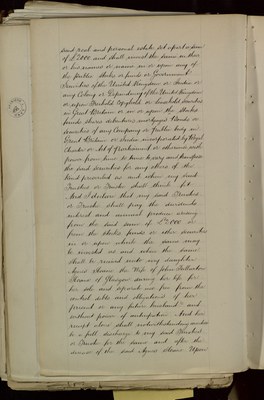 said real and personal estate set apart a sum
of £2000 and shall invest the same in their
or his names or name in or upon any of
the public stocks or funds or Government
Securities of the United Kingdom or India or
any Colony or Dependency of the United Kingdom
or upon freehold copyhold or leasehold securities
in Great Britain or in or upon the stocks
funds shares debentures mortgages Bonds or
securities of any Company or Public body in
Great Britain or India incorporated by Royal
Charter or Act of Parliament or otherwise with
power from time to time to vary and transpose
the said securities for any others of the
kind prescribed as and when my said
Trustees or Trustee shall think fit
And I declare that my said Trustees
or Trustee shall pay the dividends
interest and annual produce arising
from the said sum of £2000 or
from the stocks funds or other securities
in or upon which the same may
be invested as and when the same
shall be received unto my daughter
Agnes Sloane the Wife of John
Sloane of Glasgow during her life for
her sole and separate use free from the
control debts and obligations of her
present or any future husband and
without power of anticipation And her
receipt alone shall notwithstanding coverture
be a full discharge to my said Trustees
or Trustee for the same and after the
decease of the said Agnes Sloane Upon